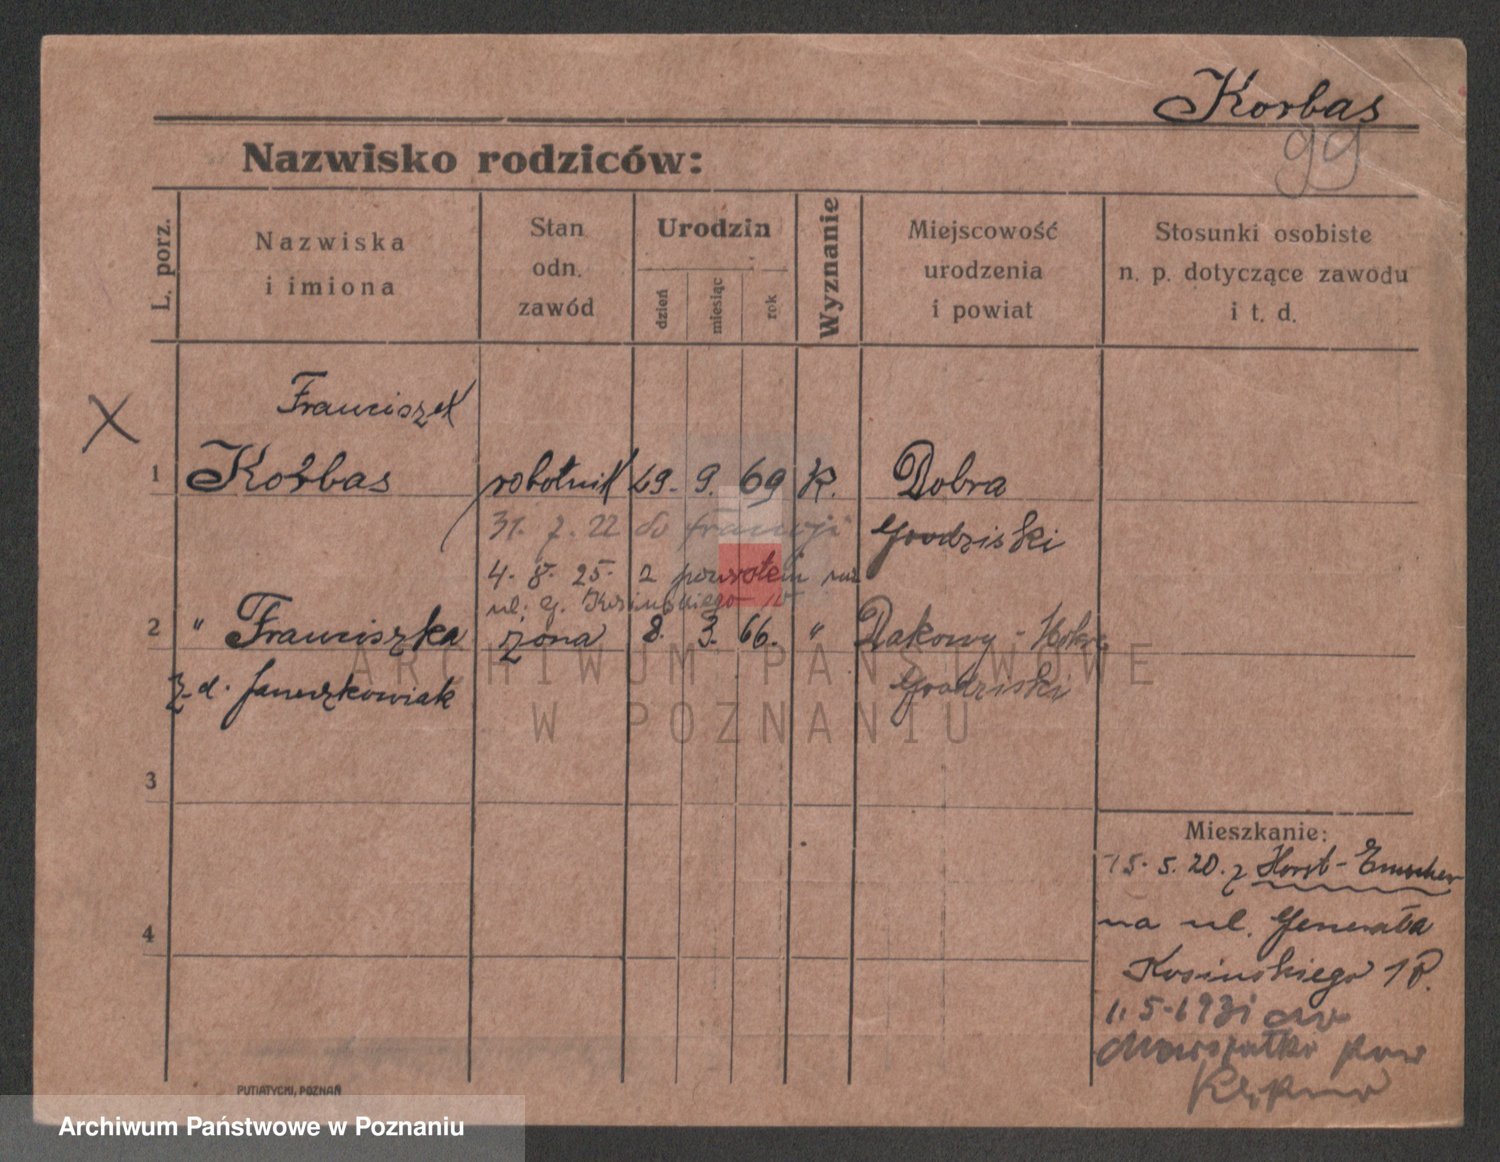 Korbas
99
Nazwisko rodziców:
L. porz.
Nazwiska
i imiona
Stan
odn.
zawód
Urodzin
dzień
miesiąc
rok
Wyznanie
Miejscowość
urodzenia
i powiat
Stosunki osobiste
n. p. dotyczące zawodu
i t. d.
X
Franciszek
1 Korbas robotnik 29. 9. 69 K. Dobra
31. 7. 22 do francji Grodziski
4. 8. 25. z powrotem na
ul. G. Kosińskiego 18
2 " Franciszka żona 8. 3. 66. " Dakowy - Mokre
z d. Janeczkowiak Grodziski
3
4
Mieszkanie:
15. 5. 20. z Horst-Emscher
na ul. Generała
Kosińskiego 18.
1. 5-1931 do
pow
Kępno
PUTIATYCKI, POZNAŃ
ARCHIWUM PAŃSTWOWE
W POZNANIU
Archiwum Państwowe w Poznaniu